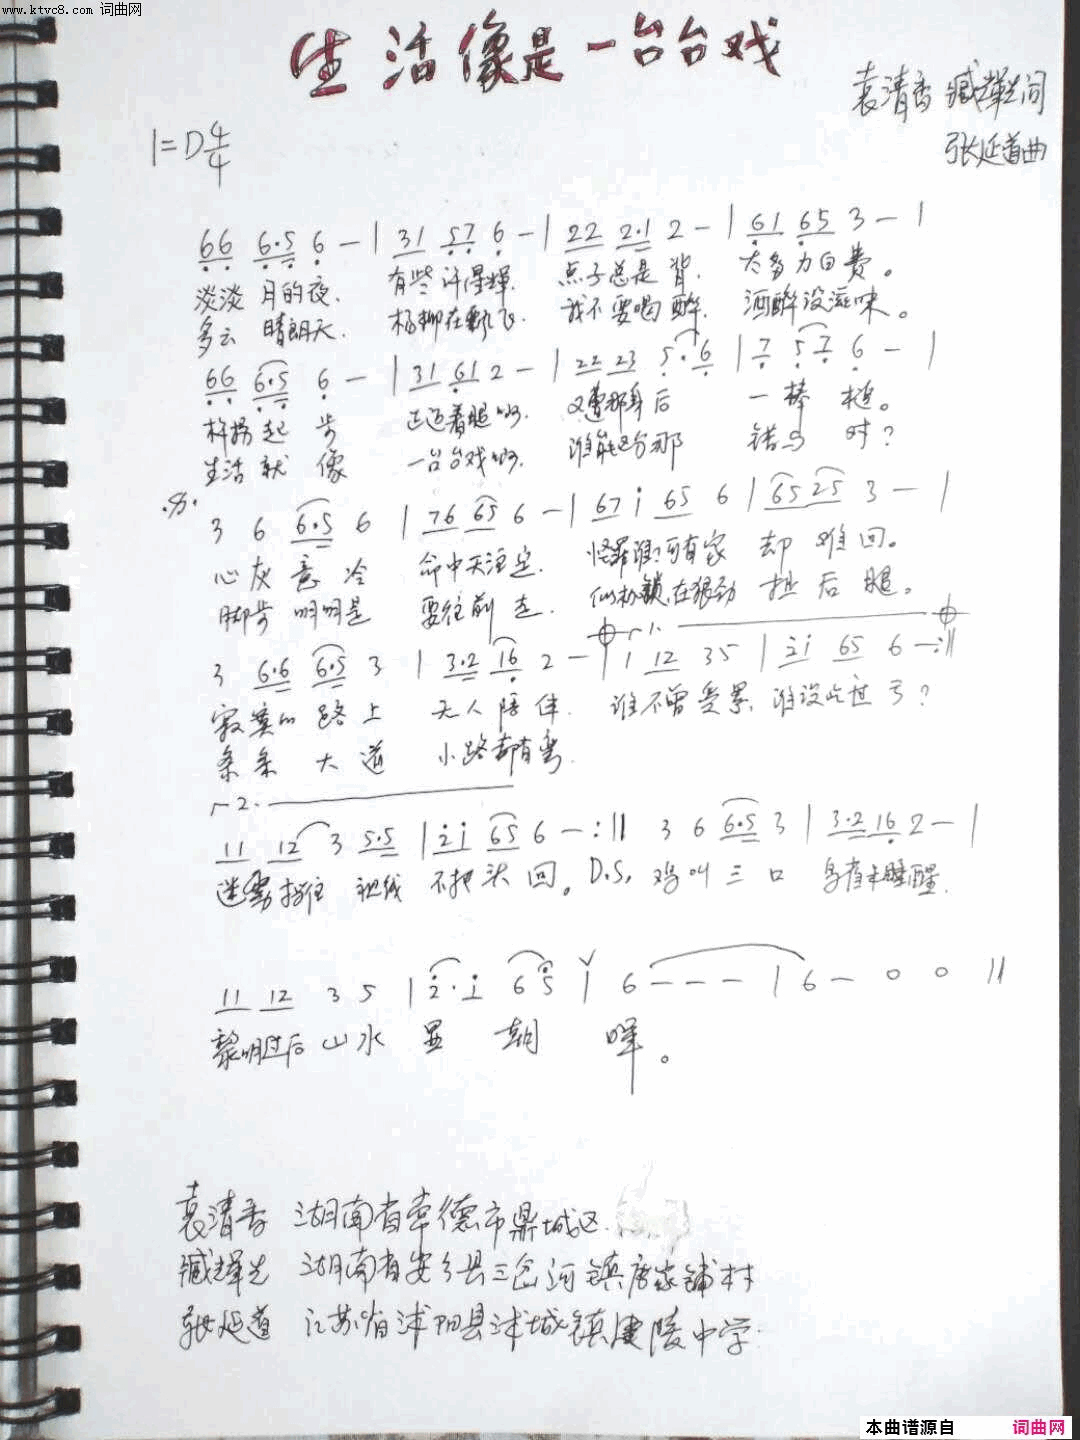 www.ktvc8.com 词曲网
生活像是一台台戏
袁清香 臧辉先词
1=D 4/4
张延道曲
66 6·5 6 - | 31 57 6 - | 22 2·1 2 - | 61 65 3 - |
淡淡 月的夜. 有些许得辉. 点子总是背. 大多力白费。
多云 晴朗天. 杨柳在飘飞. 我不要喝醉. 酒醉没滋味。
66 6·5 6 - | 31 61 2 - | 22 23 5·6 | 7 57 6 - |
拐起 步 正迈着腿 又遭那身后 一棒槌。
生活就像 一台台戏 谁能区分那 错与对?
3 6 6·5 6 | 76 65 6 - | 67 i 65 6 | 65 25 3 - |
心灰意冷 命中天注定. 怪罪谁可有家 却难回。
脚步明明是 要往前走. 似枷锁在狠劲 拽后腿。
1.
3 6·6 6·5 3 | 3·2 16 2 - | 1 12 35 | 2i 65 6 - :||
寂寞的路上 无人陪伴. 谁不曾受累, 谁没吃过亏?
条条大道 小路却有弯.
2.
11 12 3 5·5 | 2i 65 6 - :|| 3 6 6·5 3 | 3·2 16 2 - |
迷雾挡住视线 不把头回。D.S. 鸡叫三口 睡醒.
11 12 3 5 | 2·i 65 | 6 - - - | 6 - 0 0 ||
黎明过后山水 显朝晖。
袁清香 湖南省常德市鼎城区.
臧辉先 湖南省安乡县三岔河镇唐家铺村
张延道 江苏省沭阳县沭城镇建陵中学.
本曲谱源自 词曲网